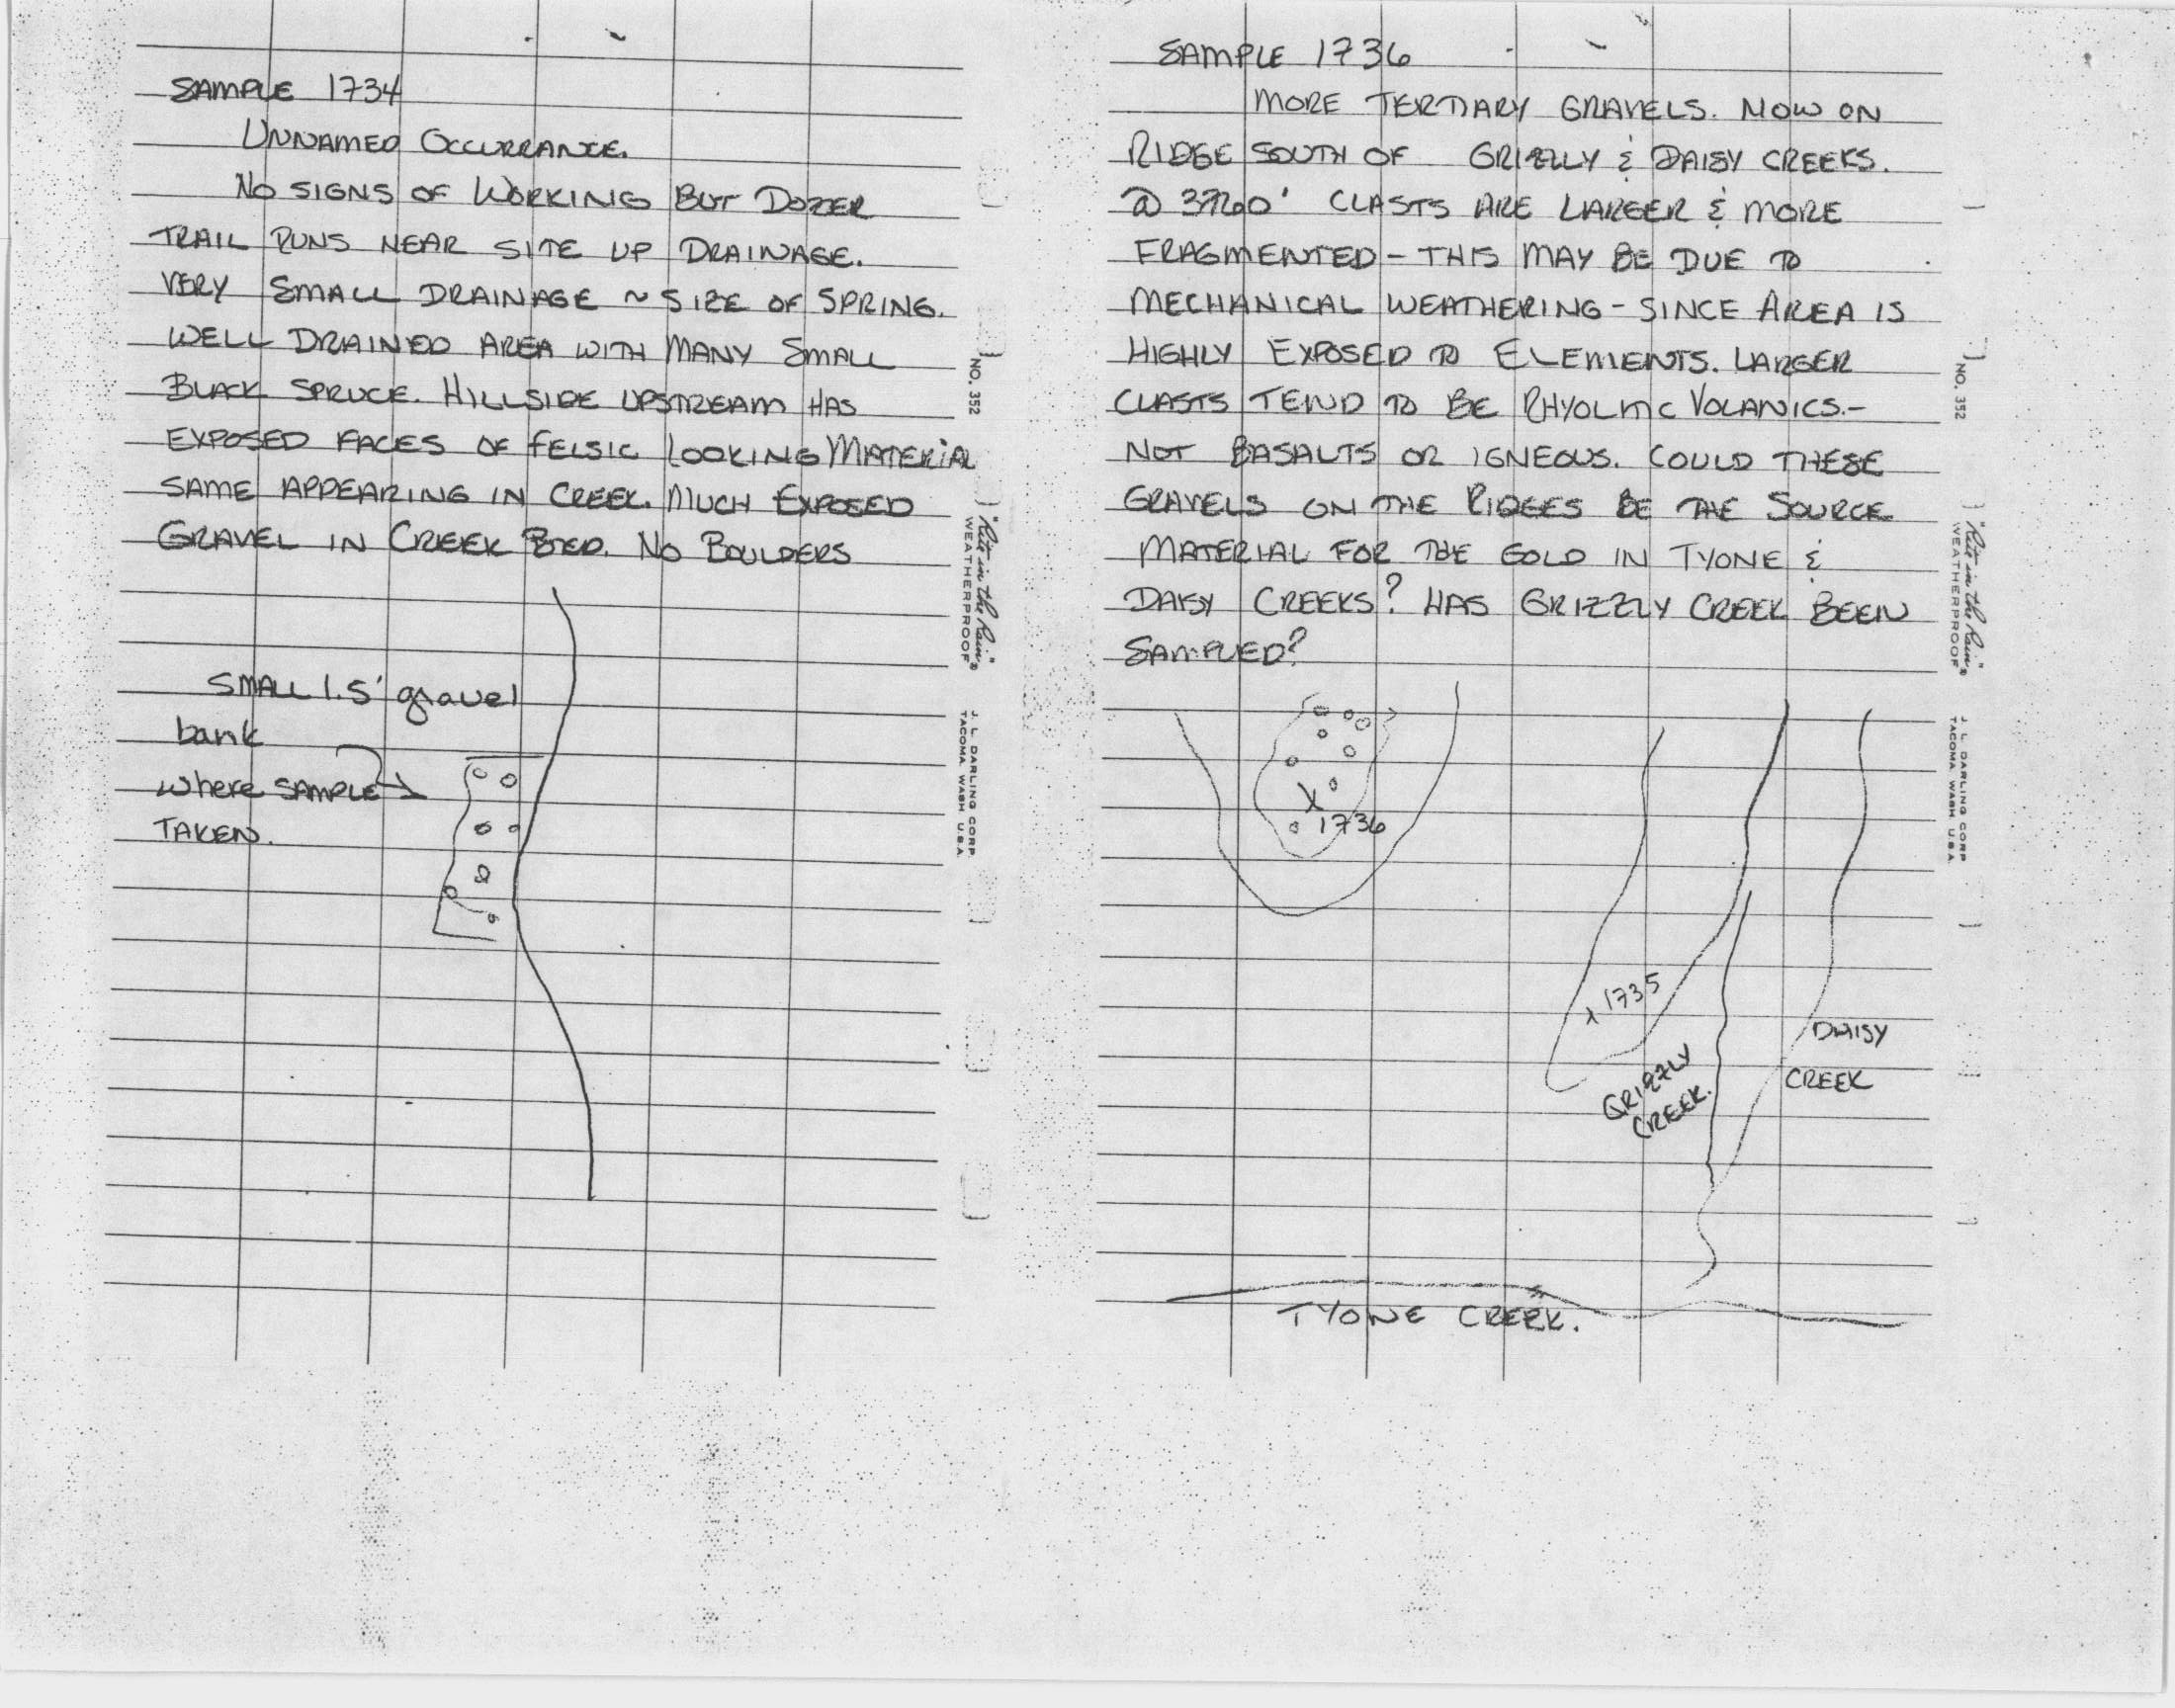 SAMPLE 1734
UNNAMED OCCURRANCE.
NO SIGNS OF WORKING BUT DOZER
TRAIL RUNS NEAR SITE UP DRAINAGE.
VERY SMALL DRAINAGE ~ SIZE OF SPRING.
WELL DRAINED AREA WITH MANY SMALL
BLACK SPRUCE. HILLSIDE UPSTREAM HAS
EXPOSED FACES OF FELSIC LOOKING MATERIAL
SAME APPEARING IN CREEK. MUCH EXPOSED
GRAVEL IN CREEK BED. NO BOULDERS
SMALL 1.5' gravel
bank
where SAMPLE
TAKEN.
NO. 352
"Rite in the Rain"
WEATHERPROOF
J. L. DARLING CORP
TACOMA WASH U.S.A.
SAMPLE 1736
MORE TERTIARY GRAVELS. NOW ON
RIDGE SOUTH OF GRIZZLY & DAISY CREEKS.
@ CLASTS ARE LARGER & MORE
FRAGMENTED - THIS MAY BE DUE TO
MECHANICAL WEATHERING - SINCE AREA IS
HIGHLY EXPOSED TO ELEMENTS. LARGER
CLASTS TEND TO BE RHYOLITIC VOLANICS.-
NOT BASALTS OR IGNEOUS. COULD THESE
GRAVELS ON THE RIDGES BE THE SOURCE
MATERIAL FOR THE GOLD IN TYONE &
DAISY CREEKS? HAS GRIZZLY CREEK BEEN
SAMPLED?
X
1736
x 1735
GRIZZLY
CREEK.
DAISY
CREEK
TYONE CREEK.
NO. 352
"Rite in the Rain"
WEATHERPROOF
J. L. DARLING CORP
TACOMA WASH U.S.A.